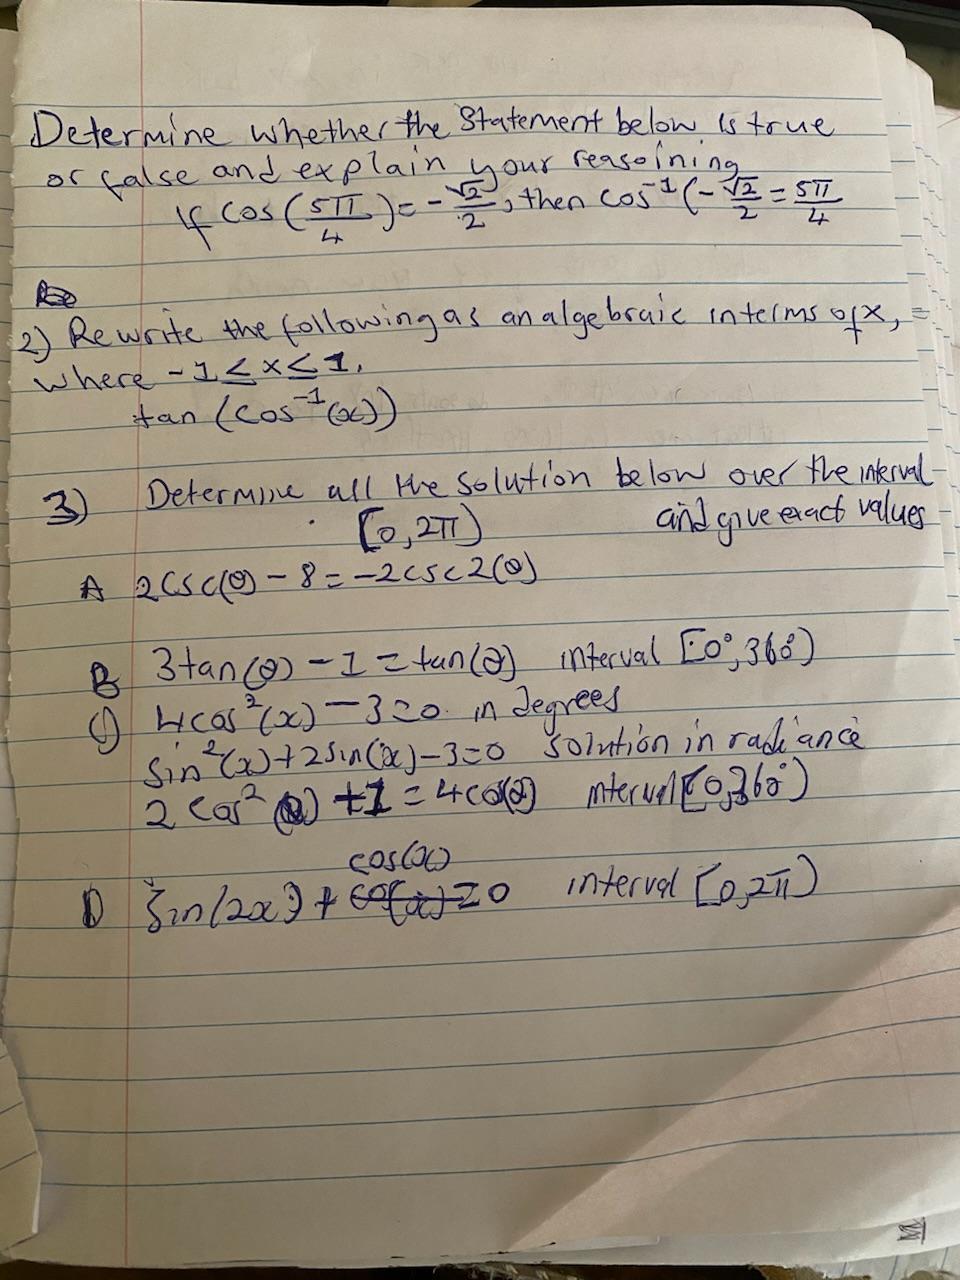 Determine whether the Statement below is true
or false and explain your reasoining
If cos(5π/4) = -√2/2, then cos⁻¹(-√2/2 = 5π/4
2) Rewrite the following as an algebraic interms of x,
where -1 ≤ x ≤ 1.
tan (cos⁻¹(x))
3) Determine all the solution below over the interval
[0, 2π) and give exact values
A 2csc(θ) - 8 = -2csc2(θ)
B 3tan(θ) - 1 = tan(θ) interval [0°, 360°)
C) 4cos²(x) - 3=0 in degrees
sin²(x) + 2sin(x) - 3=0 solution in radiance
2 cos²(θ) + 1 = 4cos(θ) interval [0, 360°)
cos(x)
D sin(2x) + =0 interval [0, 2π)